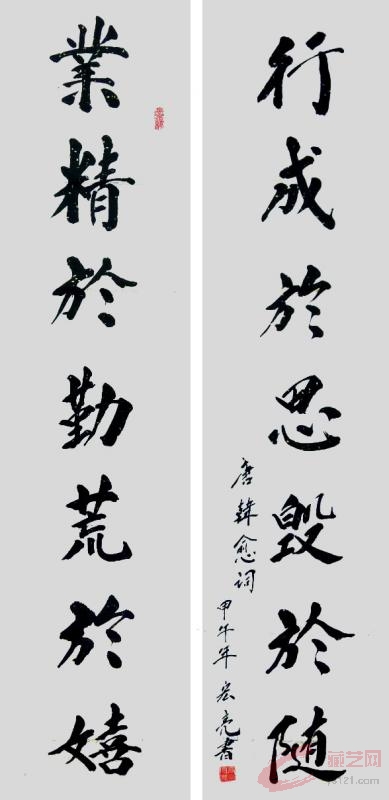 業精於勤荒於嬉
行成於思毀於随
唐韓愈词
甲午年宏亮書
藏艺网